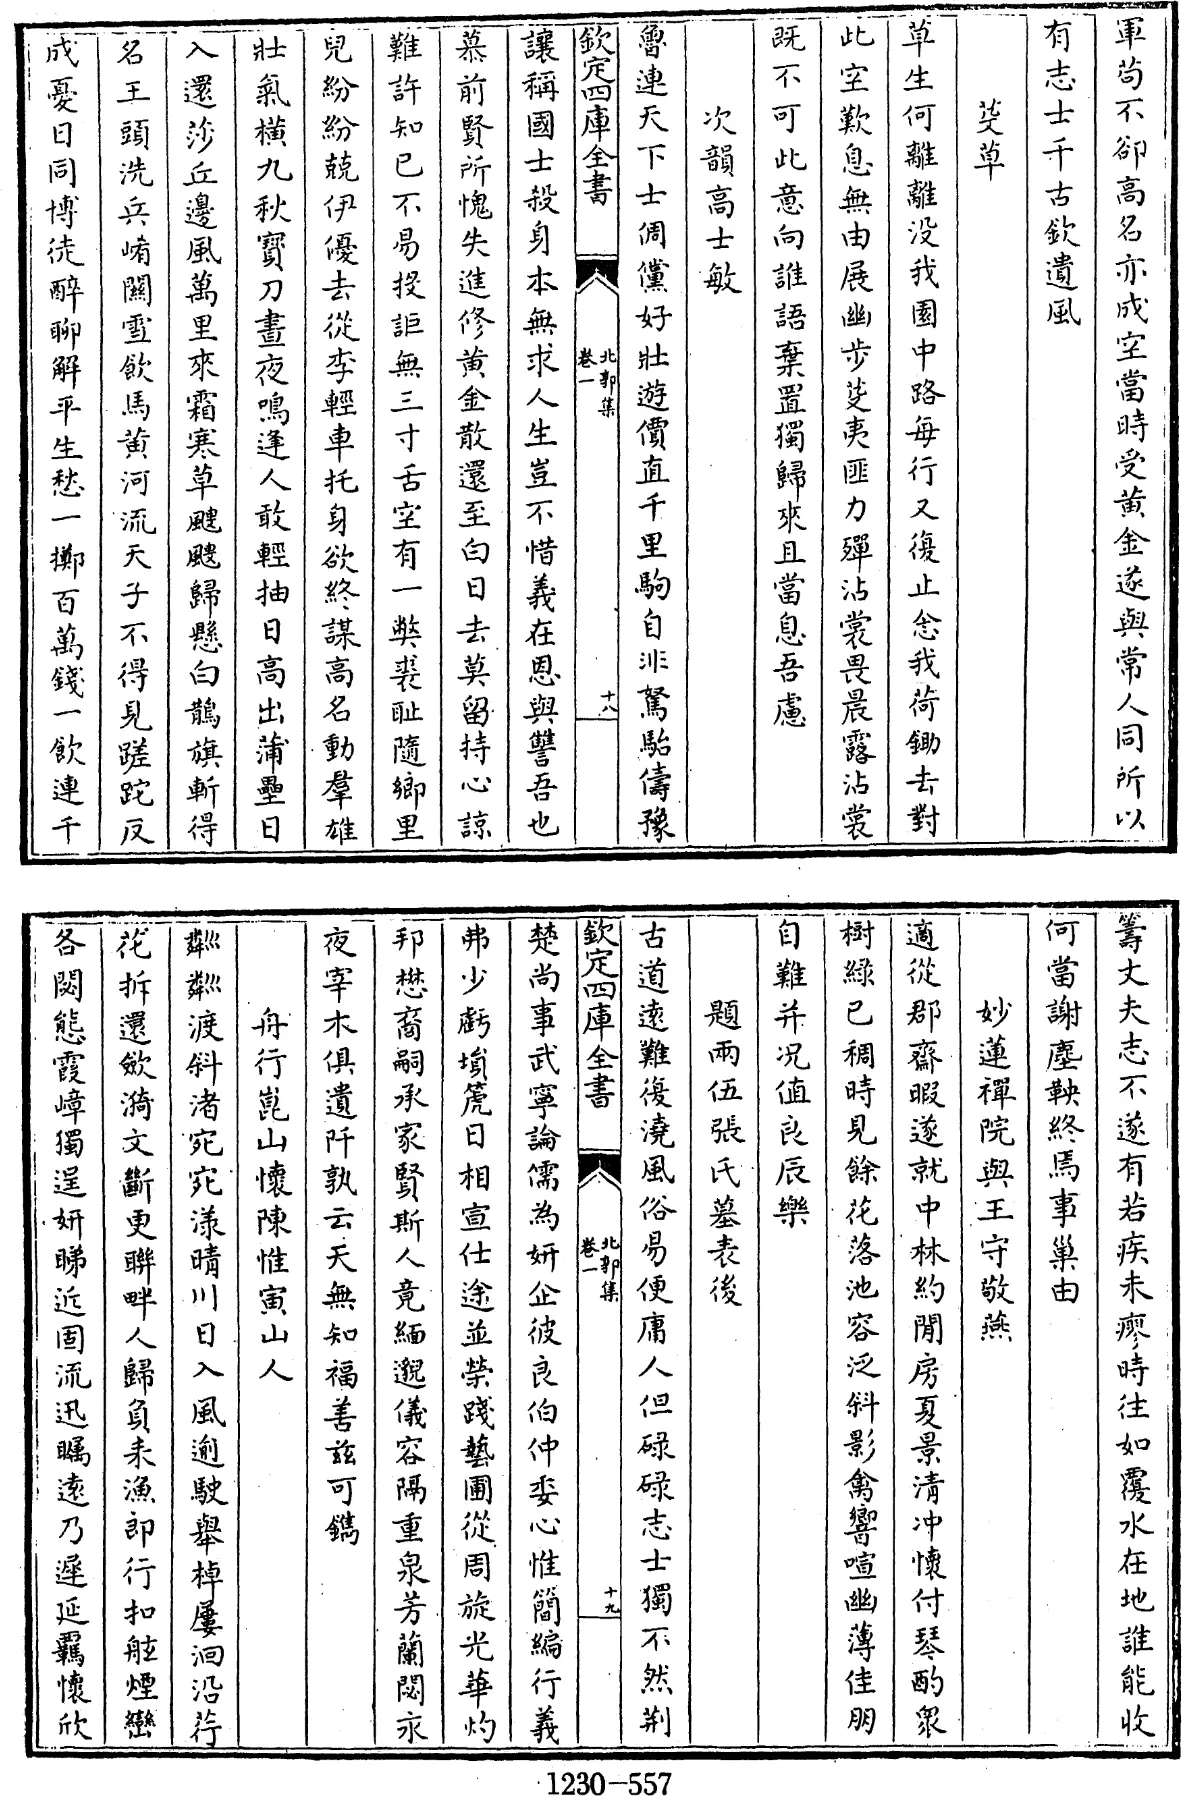 軍苟不卻高名亦成空當時受黄金遂與常人同所以
有志士千古欽遺風
芟草
草生何離離没我園中路每行又復止念我荷鋤去對
此空歎息無由展幽步芟夷匪力殫沾裳畏晨露沾裳
既不可此意向誰語棄置獨歸來且當息吾慮
次韻高士敏
魯連天下士倜儻好壯遊價直千里駒自非駑駘儔豫
欽定四庫全書
北郭集
卷一
十八
讓稱國士殺身本無求人生豈不惜義在恩與讐吾也
慕前賢所愧失進修黄金散還至白日去莫留持心諒
難許知已不易投詎無三寸舌空有一弊裘恥隨鄉里
兒紛紛兢伊優去從李輕車托身欲終謀高名動羣雄
壯氣橫九秋寳刀晝夜鳴逢人敢輕抽日高出蒲壘日
入還莎丘邊風萬里來霜寒草颼颼歸懸白鵲旗斬得
名王頭洗兵崤關雪飲馬黄河流天子不得見蹉跎反
成憂日同博徒醉聊解平生愁一擲百萬錢一飲連千
籌丈夫志不遂有若疾未瘳時往如覆水在地誰能收
何當謝塵鞅終焉事巢由
妙蓮禪院與王守敬燕
適從郡齋暇遂就中林約閒房夏景清冲懷付琴酌衆
樹緑已稠時見餘花落池容泛斜影禽響喧幽薄佳朋
自難并况值良辰樂
題兩伍張氏墓表後
古道遠難復澆風俗易便庸人但碌碌志士獨不然荆
欽定四庫全書
北郭集
卷一
十九
楚尚事武寧論儒為妍企彼良伯仲委心惟簡編行義
弗少虧塤箎日相宣仕途並榮踐藝圃從周旋光華灼
邦懋裔嗣承家賢斯人竟緬邈儀容隔重泉芳蘭閟永
夜宰木俱遺阡孰云天無知福善兹可鐫
舟行崑山懷陳惟寅山人
粼粼渡斜渚宛宛漾晴川日入風逾駛舉棹屢洄沿荇
花拆還斂漪文斷更聯畔人歸負耒漁郎行扣舷煙巒
各閟態霞嶂獨逞妍睇近固流迅矚遠乃遲延羈懷欣
1230-557